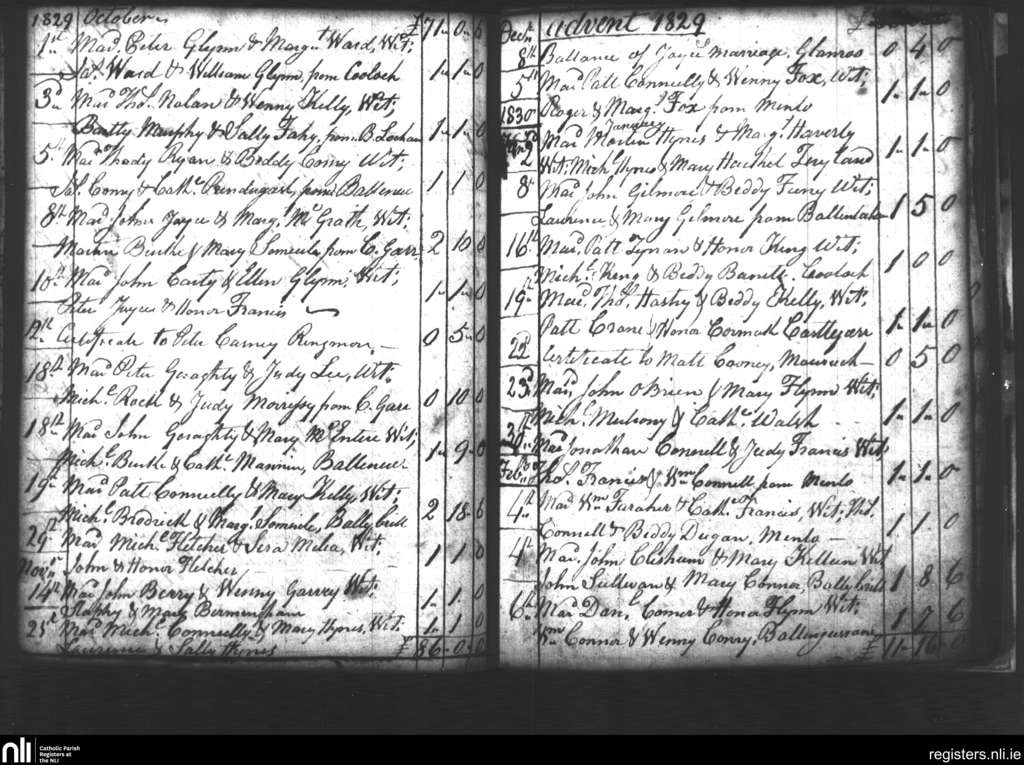 1829 October £71-0-6
1st Mar.d Peter Glynn & Margt Ward, Wit;
Jas Ward & William Glynn, from Cooloch 1-1-0
3d Mard Thos. Nolan & Wenny Kelly, Wit;
Bartly Murphy & Sally Fahy, from B.Lochan 1-1-0
5th Mard Thady Ryan & Biddy Conry Wit;
Jas. Conry & Cathe Prendergast, from 1 1 0
8th Mard John Joyce & Margt McGrath, Wit;
Martin Burke & Mary from C. Garr 2 10 0
10th Mard John Carty & Ellen Glynn, Wit;
Peter Joyce & Honor Francis 1-1-0
12th Certificate to Peter Carney Ringmore, - 0 5-0
18th Mard Peter Geraghty & Judy Lee, Wit.
Michl Rock & Judy Morrissy from C. Gare 0 10 0
18th Mard John Geraghty & Mary McEntire Wit;
Michl. Burke & Cathe Mannin, 1-9-0
19th Mard Patt Connelly & Mary Kelly, Wit;
Michl Brodrick & Margt , Ballybrit 2 18-6
29th Mard Michl Fletcher & Melia, Wit; 1 1 0
Novr John & Honor Fletcher
14th Mard John Berry & Winny Garvey Wit; 1-1-0
& Mary Bermingham
25t Mard Michl. Connelly & Mary Hynes, Wit; 1-1 0
Laurence & Sally Hynes £ 86-0-0
Decr Advent 1829
8th Ballance of Joyce's marriage, Glanroo 0 4 0
5th Mard Patt Connelly & Wenny Fox, Wit;
1830 Roger & Margt Fox from Menlo 1-1-0
January
2d Mard Martin Hynes & Margt Haverly
Wit: Michl Hynes & Mary 1-1-0
8th Mard John Gilmore & Biddy Furey Wit;
Laurence & Mary Gilmore from 1 5 0
16th Mard Patt Tynan & Honor King Wit;
Michl King & Biddy Barrett. Cooloch 1 0 0
19th Mard Thos. & Biddy Kelly, Wit;
Patt Crane & Hona Cormick 1-1-0
22d Certificate to Matt Cooney, - 0 5 0
23d Mard John OBrien & Mary Flynn Wit;
Michl Mulrony & Cathe Walsh 1-1-0
Mard Jonathan Connell & Judy Francis Wit;
Feb. Thos Francis & Wm Connell from Menlo 1-1-0
1st Mard Wm Faraher & Cathe Francis, Wit; Thos.
Connell & Biddy Dugan, Menlo - 1 1 0
4th Mard John Clisham & Mary Killeen Wit
John Sullivan & Mary Connor, Ballybrit 1 8 6
6th Mard Danl Comer & Hona Flynn Wit; 1 7 6
Wm Connor & Wenny Conry, £11-16-0
nli Catholic Parish
Registers at
the NLI
registers.nli.ie